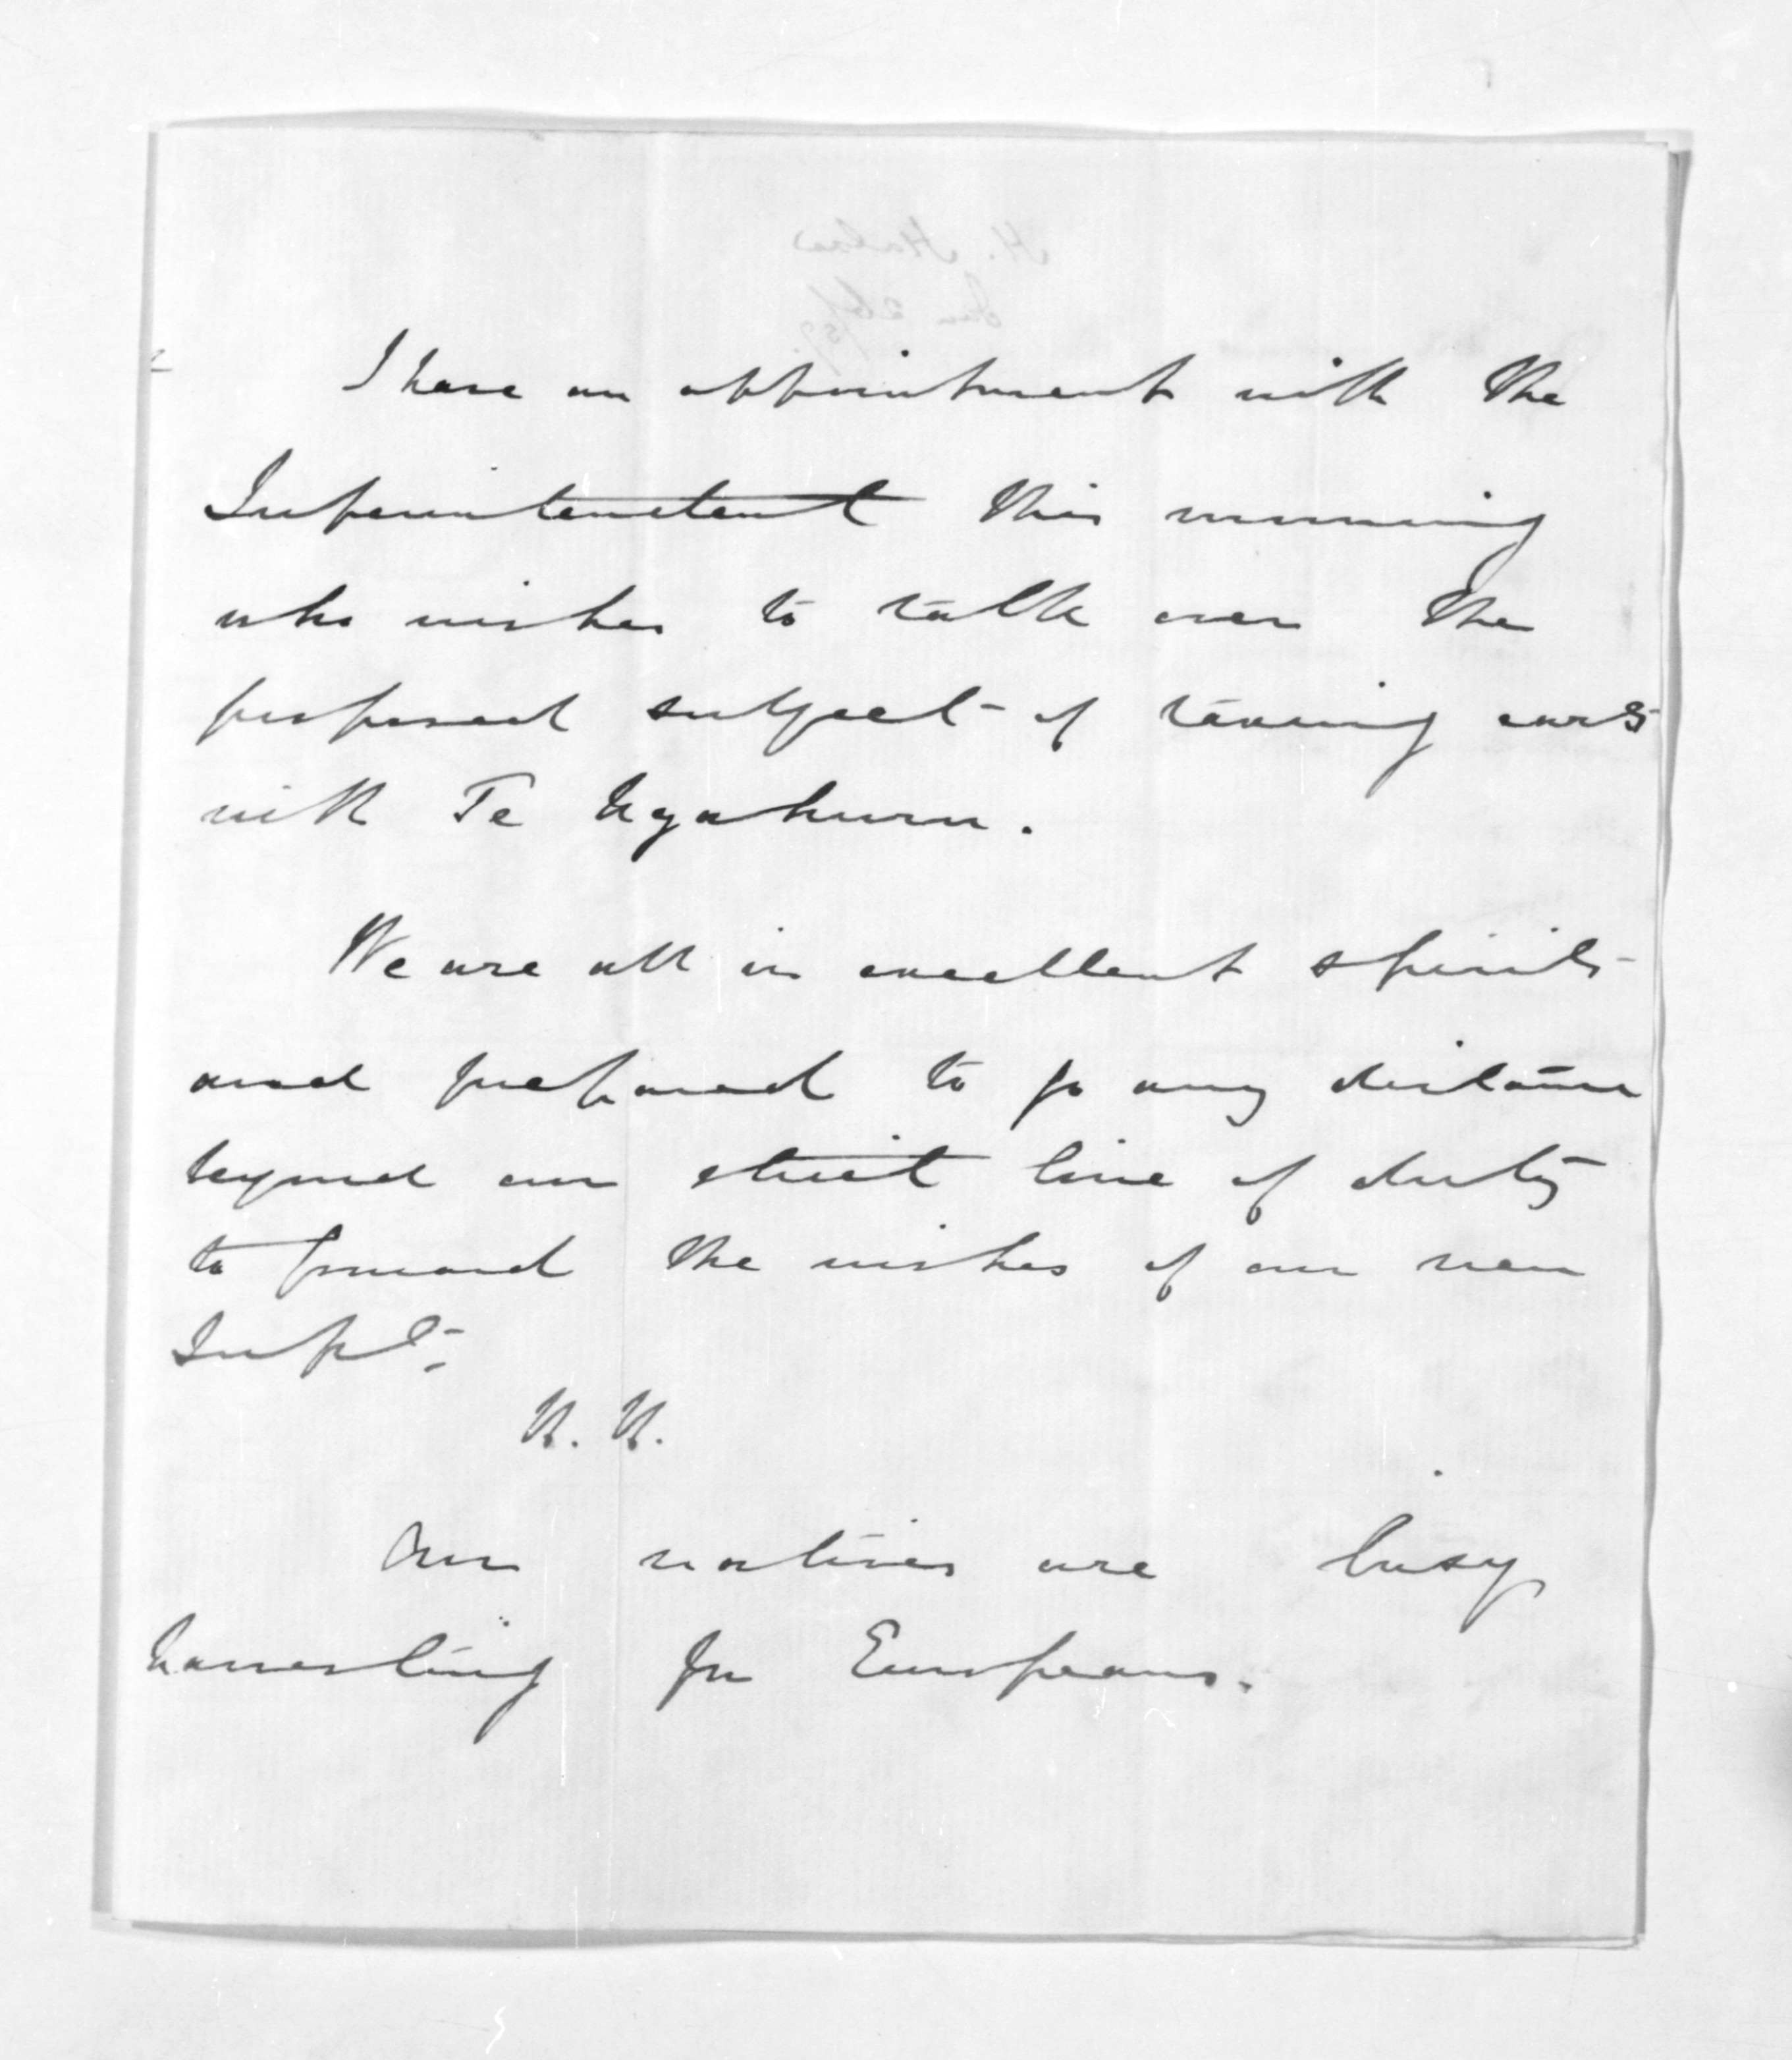 I have an appointment with the
Superintendent this morning
who wishes to talk over the
proposed subject of taxing curs
with Te Ngahuru.
We are all in excellent spirits
and prepared to go any distance
beyond our strict line of duty
to forward the wishes of our new
Supt.
H. H.
Our natives are busy
harvesting for Europeans.